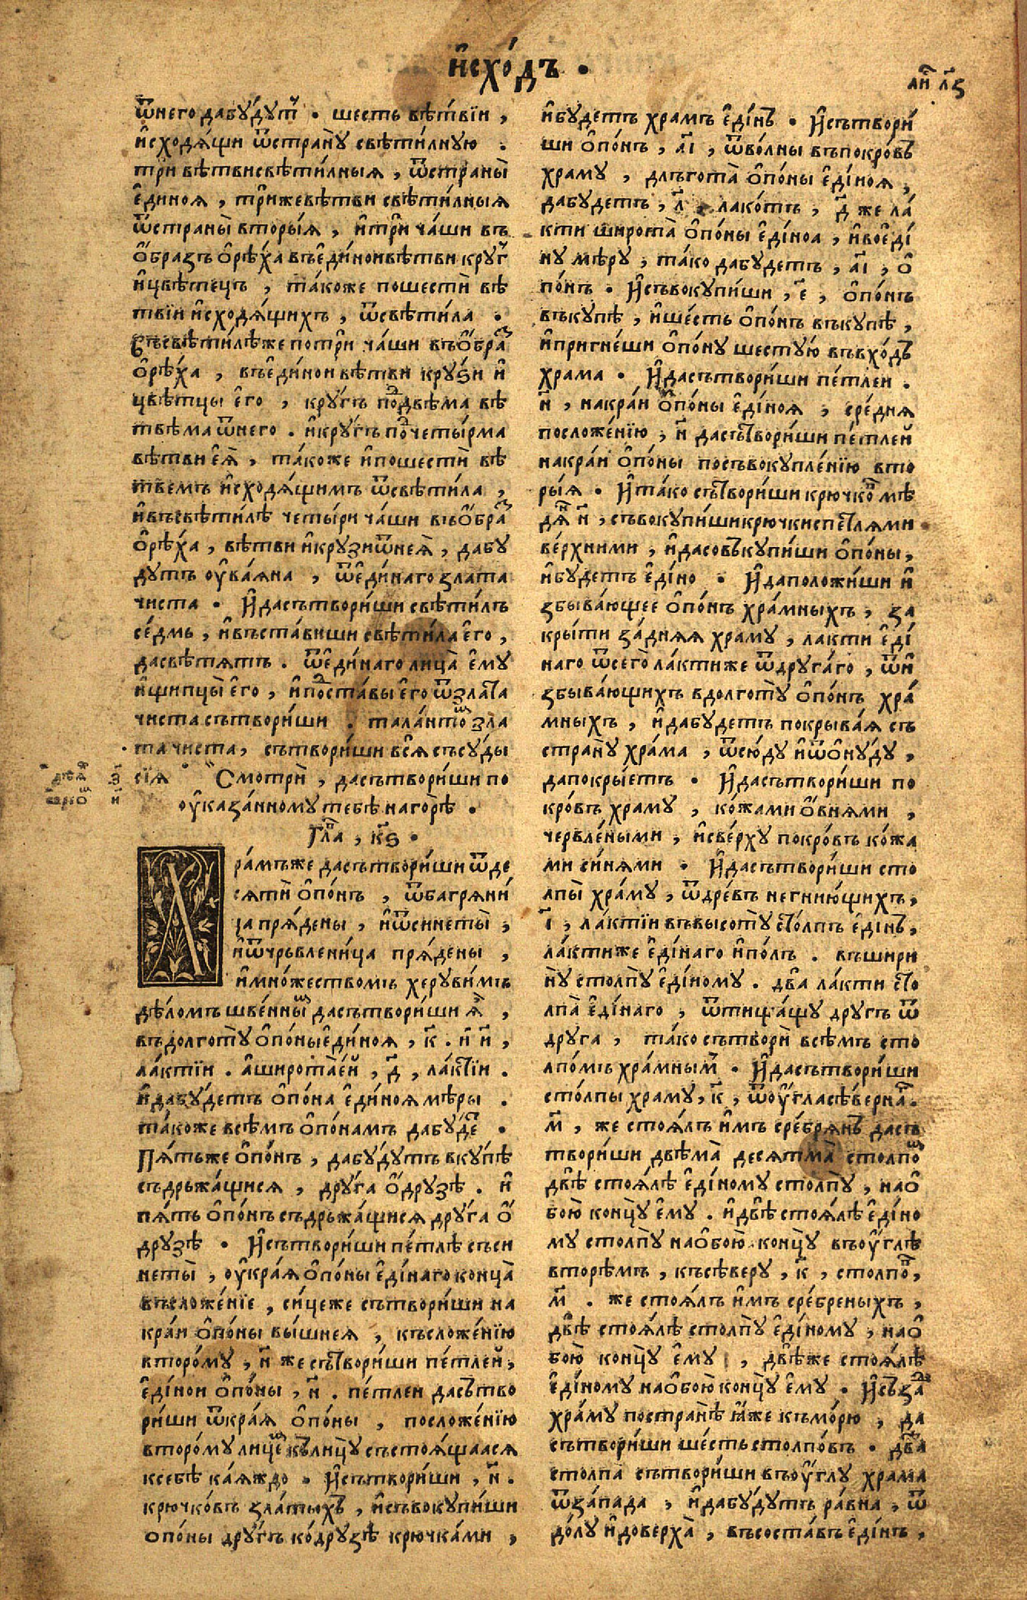 И҆схо́дъ .
ли́ л҃ѕ
ѿнего дабу́дут . шесть вѣ́твїи ,
и҆сходя́щи ѿстрану̀ свѣти́лную .
три вѣтвисвѣти́лныя , ѿстраны̀
е҆диноя , три́жевѣтви свѣти́лныя
ѿстраны̀ вторы́я , и҆три̑ ча́ши въ
о҆́бразъ о҆рѣ́ха въе҆ди́нои вѣтви круг
и҆цвѣ́тецъ , та́коже пошести вѣ
твїи и҆сходя́щихъ , ѿсвѣти́ла .
въсвѣти́лѣже потри̑ ча́ши въо҆́бра
о҆рѣ́ха , въе҆ди́нои вѣ́тви кру́ѕи и҆
цвѣ́тцы е҆го , кру́гъ подвѣ́ма вѣ
твѣма ѿнего . и҆кру́гъ почеты́рма
вѣ́тви е҆я̀ , та́коже и҆пошестѝ вѣ
твемъ и҆сходя́щимъ ѿсвѣти́ла ,
и҆въсвѣти́лѣ четы́ри ча́ши въо҆́бра
о҆рѣ́ха , вѣтви и҆крузиѿнея̀ , дабу
дутъ оу҆ва́яна , ѿе҆ди́наго злата
чиста . И҆дасътвори́ши свѣти́лъ
се́дмь , и҆въста́виши свѣти́ла е҆го ,
дасвѣ́тятъ . ѿе҆ди́наго лица̀ е҆му
и҆щипцы̀ е҆го , и҆поста́вы е҆го ѿзлата
чиста сътвори́ши . тала́нто зла
та чиста , сътвори́ши вся съсу́ды
сїя Смотрѝ , дасътвори́ши по
оу҆каза́нному тебѣ нагорѣ̀ .
Гла , к҃ѕ .
Хра́мъже дасътвори́ши ѿде
сятѝ о҆по́нъ , ѿбагряни́
ца пря́дены , и҆ѿсинеты̀ ,
и҆ѿчрьвлени́ца пря́дены ,
и҆мно́жествомъ херуви́мъ
дѣ́ломъ швенны́ дасътвори́ши я҆ ,
въдолготу̀ о҆по́ны е҆ди́ноя , к҃ . и҆ и҃ ,
ла́ктїи . аширота̀е́й , д҃ , ла́ктїи .
и҆дабу́детъ о҆по́на е҆ди́ноя мѣры .
та́коже всѣ́мъ о҆по́намъ дабу́де .
Пя́тьже о҆по́нъ , дабу́дутъ вку́пѣ
съдрьжа́щися , дру́га о҆друзѣ . и҆
пять о҆по́нъ съдрьжа́щися дру́га о҆
друзѣ . И҆сътвори́ши пе́тлѣ съси
неты̀ , оу҆кра́я о҆по́ны е҆ди́наго конца̀
въсложе́нїе , си́цеже сътвори́ши на
кра́и о҆по́ны вы́шнея , късложе́нїю
второ́му , н҃ же сътвори́ши пе́тлей ,
е҆ди́нои о҆по́ны , н҃ . пе́тлеи дасътво
ри́ши ѿкра́я о҆по́ны , посложе́нїю
второ́му лице́ кълицу̀ състоя́щаася
ксебѣ̀ ка́яждо . И҆сътвори́ши , н҃ .
крючко́въ златы́хъ , и҆съвокупи́ши
о҆по́ны дру́гъ ко́друзѣ крючка́ми ,
и҆бу́детъ храмъ е҆ди́нъ . И҆сътвори́
ши о҆по́нъ , а҃і , ѿво́лны въпокро́въ
храму , длъгота̀ о҆по́ны е҆ди́ноя ,
дабу́детъ , л҃ лако́тъ , д҃ же ла́
кти широта̀ о҆по́ны е҆ди́ноа , и҆вое҆ди́
ну мѣ́ру , та́ко дабу́детъ , а҃і , о҆
по́нъ . И҆съвокупи́ши , е҃ , о҆по́нъ
въку́пѣ , и҆ше́сть о҆по́нъ въку́пѣ ,
и҆пригне́ши о҆по́ну шесту́ю въвхо́дъ
храма . И҆дасътвори́ши пе́тлеи .
н҃ , накра́и о҆по́ны е҆ди́ноя , сре́дня
посложе́нїю , н҃ дасътвори́ши пе́тлей
накра́и о҆по́ны посъвокупле́нїю вто
ры́я . И҆та́ко сътвори́ши крючко мѣ
дя н҃ , съвокупи́ши крючки спетлями
ве́рхними , и҆дасовъкупи́ши о҆по́ны ,
и҆бу́детъ е҆ди́но . И҆даположи́ши и҆
збыва́ющее о҆по́нъ хра́мныхъ , за
кры́ти за́дняя храму , лакти е҆ди́
наго ѿсего̀ ла́ктиже ѿдруга́го , ѿи҆
збыва́ющихъ вдолготу̀ о҆по́нъ хра́
мныхъ , и҆дабу́детъ покрыва́я съ
страну̀ храма , ѿсю́ду и҆ѿо҆ну́ду ,
дапокры́етъ . И҆дасътвори́ши по
кро́въ храму , ко́жами о҆вними ,
червле́ными , и҆све́рху покро́въ ко́жа
ми си́нями . И҆дасътвори́ши сто
лпы̀ храму , ѿдре́въ негнию́щихъ ,
і҃ , ла́ктїи въвысоту̀ сто́лпъ е҆ди́нъ ,
ла́ктиже е҆ди́наго и҆по́лъ . въшири
ну̀ столпу е҆ди́ному . два ла́кти сто
лпа̀ е҆ди́наго , ѿтища́щу дру́гъ ѿ
друга , та́ко сътворѝ всѣ́мъ сто
лпо́мъ хра́мным . И҆дасътвори́ши
столпы храму , к҃ , ѿоу҆гла сѣверна .
м҃ , же стоя́лъ и҆мъ сре́брянъ дасъ
твори́ши двѣма̀ десятма̀ столпо
двѣ стоя́лѣ е҆ди́ному столпу̀ , нао҆
бою конц̀у е҆му . и҆двѣ стоя́лѣ е҆ди́но
му столпу нао҆бою̀ конц̀у въоу҆́глѣ
вторѣ́мъ , късѣ́веру , к҃ , столпо ,
м҃ . же стоя́лъ и҆мъ сре́бреныхъ ,
двѣ̀ стоя́лѣ столпу̀ е҆ди́ному , нао҆
бою̀ конц̀у е҆му , двѣ́же стоя́лѣ
е҆ди́ному нао҆бою̀ конц̀у е҆му . И҆съза
храму постранѣ̀ я҆́же къмо́рю , да
сътвори́ши ше́сть столпо́въ . два
столпа̀ сътвори́ши въоу҆глу храма
ѿза́пада , и҆дабу́дутъ ра́вна , ѿ
до́лу и҆доверха̀ , въсоста́въ е҆ди́нъ ,